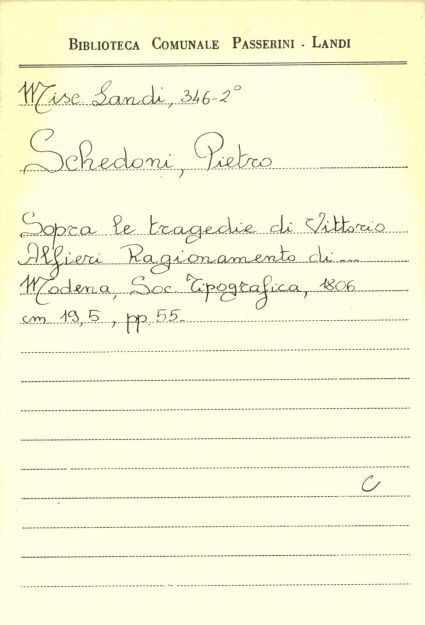 BIBLIOTECA COMUNALE PASSERINI - LANDI
Misc Landi, 346-2°
Schedoni, Pietro
Sopra le tragedie di Vittorio
Alfieri Ragionamento di...
Modena, Soc Tipografica, 1806
cm 19,5, pp. 55.
C